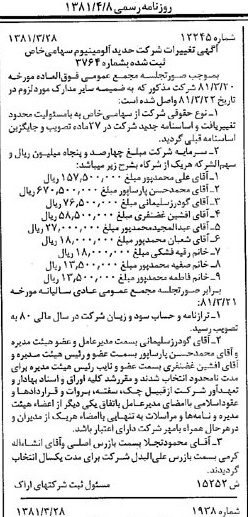 روزنامه رسمی ۱۳۸۱/۴/۸
شماره ۱۲۲۴۵ ۱۳۸۱/۳/۲۸
آگهی تغییرات شرکت حدید آلومینیوم سهامی خاص
ثبت شده بشماره ۳۷۶۴
بموجب صورتجلسه مجمع عمومی فوق‌العاده مورخه
۸۱/۳/۲۰ شرکت مذکور که به ضمیمه سایر مدارک مورد لزوم در
تاریخ ۸۱/۳/۲۲ واصل شده است:
۱ـ نوع حقوقی شرکت از سهامی خاص به بامسئولیت محدود
تغییر یافت و اساسنامه جدید شرکت در ۲۷ ماده تصویب و جایگزین
اساسنامه قبلی گردید.
۲ـ سرمایه شرکت مبلغ چهارصد و پنجاه میلیون ریال و
سهم‌الشرکه هریک از شرکاء بشرح زیر میباشد:
۱ـ آقای علی محمدپور مبلغ ۱۵۷,۵۰۰,۰۰۰ ریال
۲ـ آقای محمدحسن پارساپور مبلغ ۶۷,۵۰۰,۰۰۰ ریال
۳ـ آقای گودرز سلیمانی مبلغ ۷۶,۵۰۰,۰۰۰ ریال
۴ـ آقای افشین غضنفری مبلغ ۵۸,۵۰۰,۰۰۰ ریال
۵ـ آقای عبدالمجید محمدپور مبلغ ۲۷,۰۰۰,۰۰۰ ریال
۶ـ آقای شعبان محمدپور مبلغ ۱۸,۰۰۰,۰۰۰ ریال
۷ـ خانم رقیه قشلکی مبلغ ۱۸,۰۰۰,۰۰۰ ریال
۸ـ خانم صفیه محمدپور مبلغ ۱۳,۵۰۰,۰۰۰ ریال
۹ـ خانم فاطمه محمدپور مبلغ ۱۳,۵۰۰,۰۰۰ ریال
برابر صورتجلسه مجمع عمومی عادی سالیانه مورخه
۸۱/۳/۲۱
۱ـ ترازنامه و حساب سود و زیان شرکت در سال مالی ۸۰ به
تصویب رسید.
۲ـ آقای گودرز سلیمانی بسمت مدیرعامل و عضو هیئت مدیره
و آقای محمدحسن پارساپور بسمت عضو و رئیس هیئت مدیره و
آقای افشین غضنفری بسمت عضو و نایب رئیس هیئت مدیره برای
مدت نامحدود انتخاب شدند و مقرر شد کلیه اوراق و اسناد بهادار و
تعهدآور شرکت از قبیل چک، سفته، بروات و قراردادها و
عقود اسلامی با امضای مدیرعامل باتفاق یکی دیگر از اعضاء هیئت
مدیره و نامه‌ها و مراسلات به تنهایی با امضاء هریک از مدیران و
در هر حال همراه بامهر شرکت دارای اعتبار باشد.
۳ـ آقای محمود تجلا بسمت بازرس اصلی و آقای انشاءاله
کرمی بسمت بازرس علی‌البدل شرکت برای مدت یکسال انتخاب
گردیدند.
ش ۱۵۲۵۲ مسئول ثبت شرکتهای اراک
شماره ۱۹۳۸ ۱۳۸۱/۳/۲۸